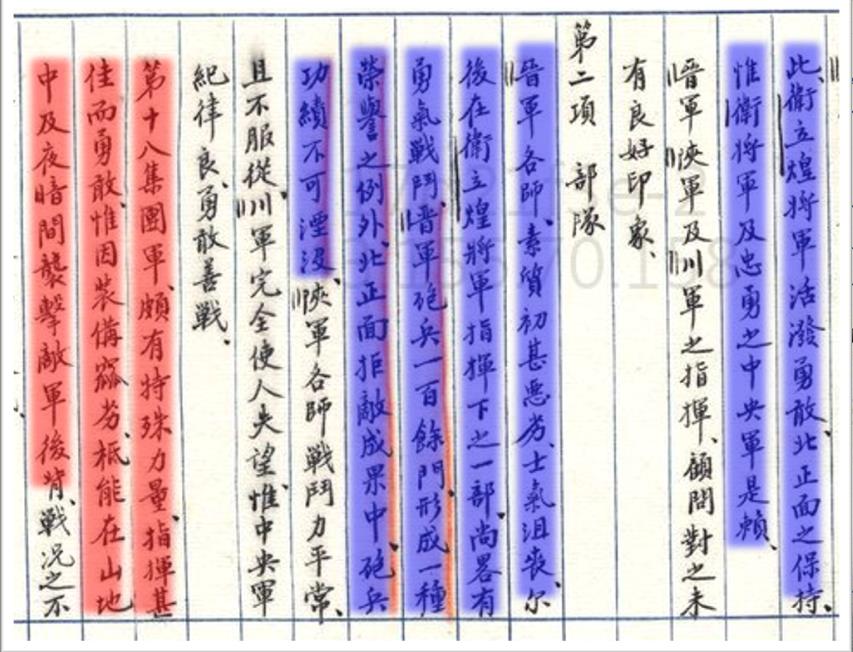 此衛立煌將軍活潑勇敢、北正面之保持、
惟衛將軍及忠勇之中央軍是賴、
晉軍陝軍及川軍之指揮、顧問對之未
有良好印象、
第二項 部隊
晉軍各師、素質初甚惡劣、士氣沮喪、尔
後在衛立煌將軍指揮下之一部、尚畧有
勇氣戰鬥、晉軍砲兵一百餘門、形成一種
榮譽之例外、北正面拒敵成果中、砲兵
功績不可湮沒、陝軍各師戰鬥力平常、
且不服從、川軍完全使人失望、惟中央軍
紀律良、勇敢善戰、
第十八集團軍、頗有特殊力量、指揮甚
佳而勇敢、惟因裝備窳劣、祇能在山地
中及夜暗間襲擊敵軍後背、戰况之不